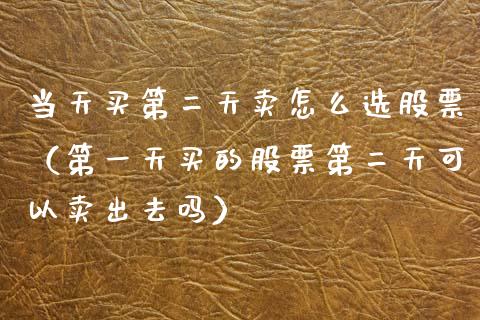 当天买第二天卖怎么选股票
（第一天买的股票第二天可
以卖出去吗）